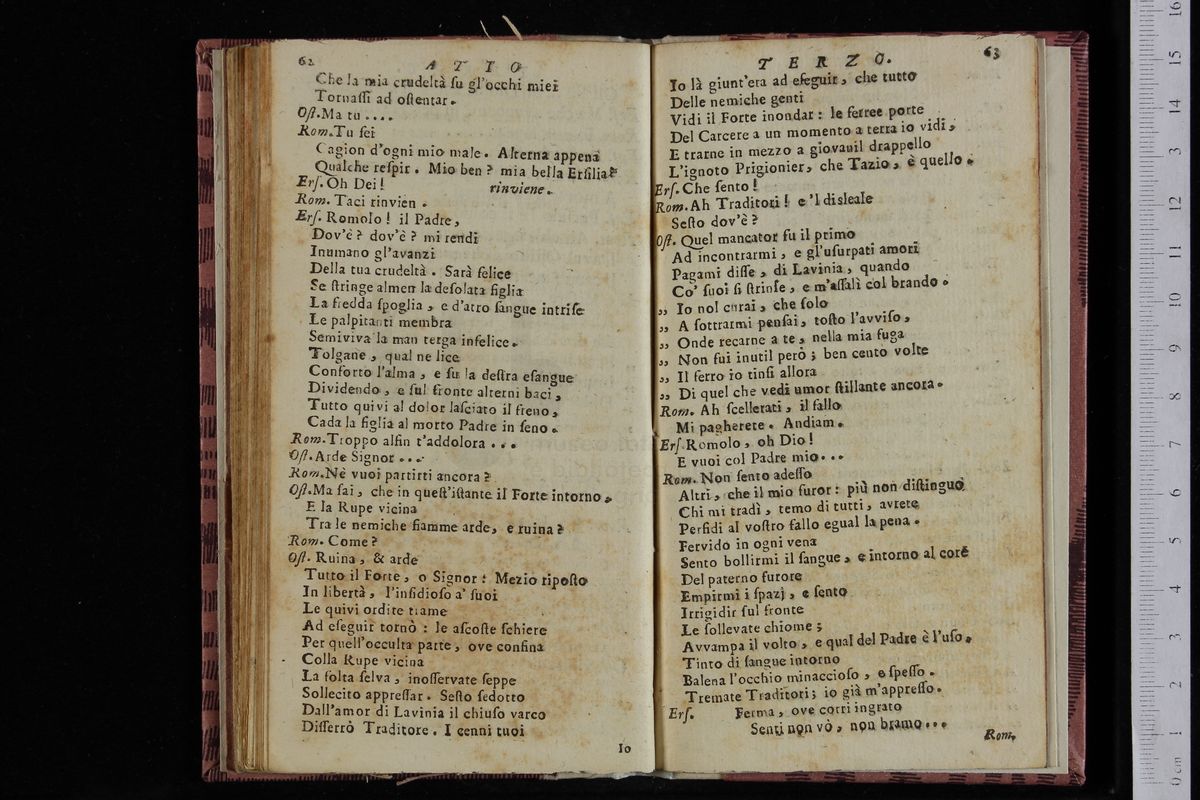 62
ATTO
Che la mia crudeltà ſu gl'occhi miei
Tornaſſi ad oſtentar.
Oſt.Ma tu ....
Rom.Tu ſei
Cagion d'ogni mio male. Alterna appena
Qualche reſpir. Mio ben? mia bella Erſilia?
Erſ.Oh Dei! rinviene.
Rom. Taci rinvien.
Erſ. Romolo! il Padre,
Dov'è? dov'è? mi rendi
Inumano gl'avanzi
Della tua crudeltà. Sarà felice
Se ſtringe almen la deſolata figlia
La fredda ſpoglia, e d'atro ſangue intriſe
Le palpitanti membra
Semiviva la man terga infelice.
Tolgane, qual ne lice
Conforto l'alma, e ſu la deſtra eſangue
Dividendo, e ſul fronte alterni baci,
Tutto quivi al dolor laſciato il freno,
Cada la figlia al morto Padre in ſeno.
Rom.Troppo alfin t'addolora ...
Oſt.Arde Signor ...
Rom.Nè vuoi partirti ancora?
Oſt.Ma ſai, che in queſt'iſtante il Forte intorno,
E la Rupe vicina
Tra le nemiche fiamme arde, e ruina?
Rom. Come?
Oſt. Ruina, & arde
Tutto il Forte, o Signor: Mezio ripoſto
In libertà, l'inſidioſo a' ſuoi
Le quivi ordite trame
Ad eſeguir tornò: le aſcoſte ſchiere
Per quell'occulta parte, ove confina
Colla Rupe vicina
La folta ſelva, inoſſervate ſeppe
Sollecito appreſſar. Seſto ſedotto
Dall'amor di Lavinia il chiuſo varco
Diſſerrò Traditore. I cenni tuoi
Io
TERZO.
63
Io là giunt'era ad eſeguir, che tutto
Delle nemiche genti
Vidi il Forte inondar: le ferree porte
Del Carcere a un momento a terra io vidi,
E trarne in mezzo a giovanil drappello
L'ignoto Prigionier, che Tazio, è quello.
Erſ. Che ſento!
Rom. Ah Traditori! e'l disleale
Seſto dov'è?
Oſt. Quel mancator fu il primo
Ad incontrarmi, e gl'uſurpati amori
Pagami diſſe, di Lavinia, quando
Co' ſuoi ſi ſtrinſe, e m'aſſalì col brando.
,, Io nol curai, che ſolo
,, A ſottrarmi penſai, toſto l'avviſo,
,, Onde recarne a te, nella mia fuga
,, Non fui inutil però; ben cento volte
,, Il ferro io tinſi allora
,, Di quel che vedi umor ſtillante ancora.
Rom. Ah ſcellerati, il fallo
Mi pagherete. Andiam.
Erſ.Romolo, oh Dio!
E vuoi col Padre mio...
Rom. Non ſento adeſſo
Altri, che il mio furor: più non diſtinguo
Chi mi tradì, temo di tutti, avrete
Perfidi al voſtro fallo egual la pena.
Fervido in ogni vena
Sento bollirmi il ſangue, e intorno al core
Del paterno furore
Empirmi i ſpazj, e ſento
Irrigidir ſul fronte
Le ſollevate chiome;
Avvampa il volto, e qual del Padre è l'uſo,
Tinto di ſangue intorno
Balena l'occhio minaccioſo, e ſpeſſo.
Tremate Traditori; io già m'appreſſo.
Erſ. Ferma, ove corri ingrato
Senti non vò, non bramo...
Rom.